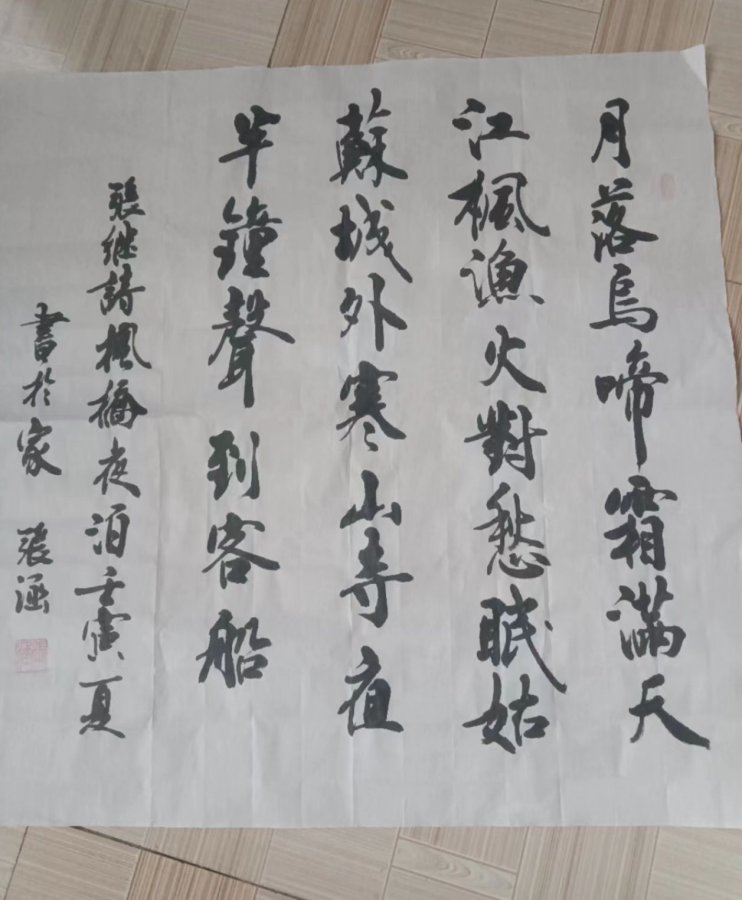 月落烏啼霜滿天
江楓漁火對愁眠姑
蘇城外寒山寺夜
半鐘聲到客船
張继詩楓橋夜泊壬寅夏
書於家 張涵